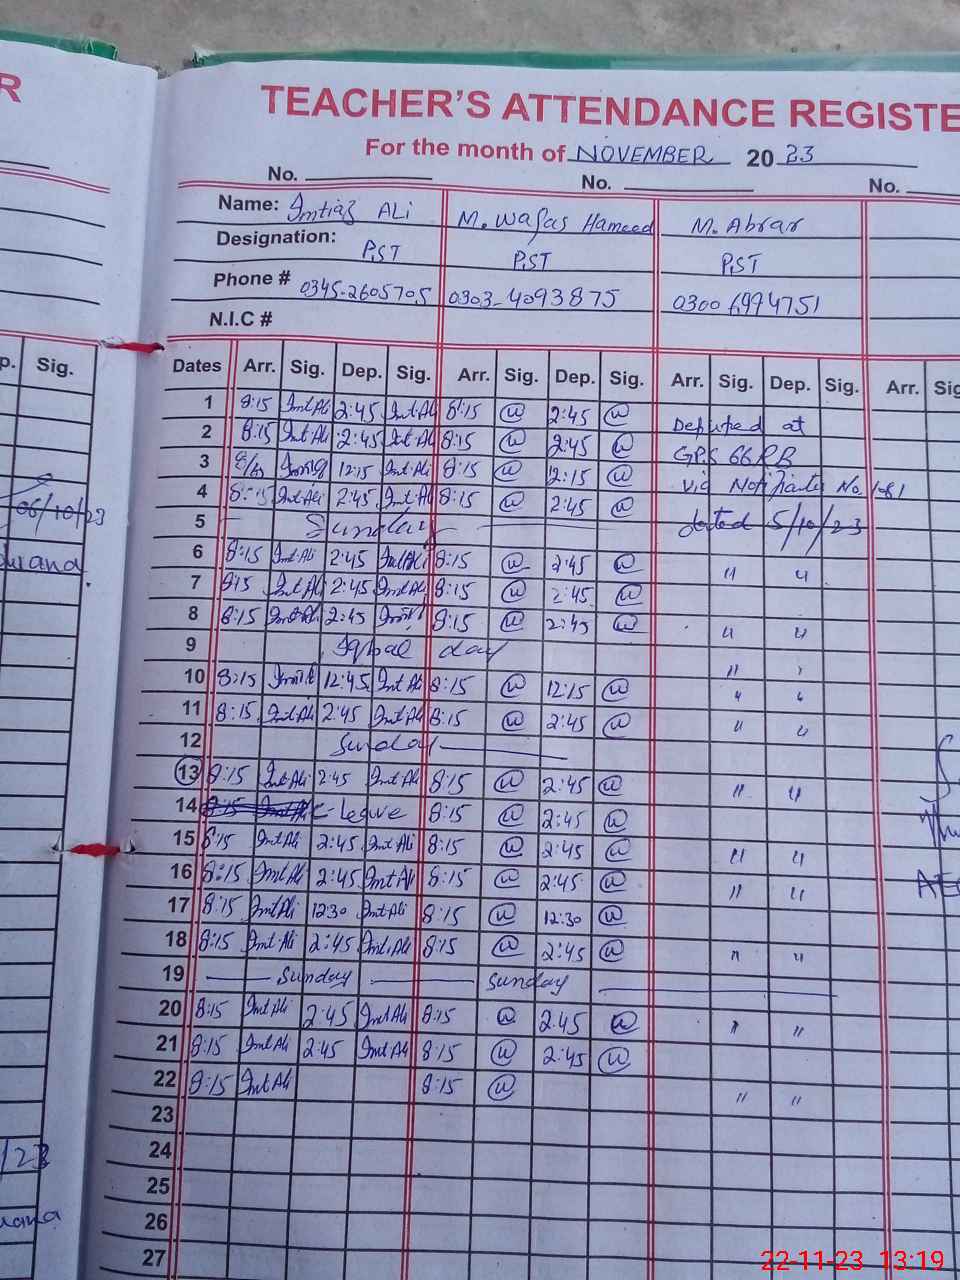 R
TEACHER'S ATTENDANCE REGISTE
For the month of NOVEMBER 20 23
No. No. No.
Name: Imtiaz ALi M. Waqas Hameed M. Abrar
Designation: P.ST P.ST P.ST
Phone # 0345-2605705 0303-4093875 0300 6994751
N.I.C #
p. Sig. Dates Arr. Sig. Dep. Sig. Arr. Sig. Dep. Sig. Arr. Sig. Dep. Sig. Arr. Sig
1 8:15 Imt Ali 2:45 Imt Ali 8:15 @ 2:45 @ Deputed at
2 8:15 Imt Ali 2:45 Imt Ali 8:15 @ 2:45 @ GPS 66 RB
3 12:15 Imt Ali 8:15 @ 12:15 @ No 1081
4 8:15 Imt Ali 2:45 Imt Ali 8:15 @ 2:45 @ dated 5/10/23
06/10/23
5 Sunday
6 8:15 Imt Ali 2:45 Imt Ali 8:15 @ 2:45 @ " "
7 8:15 Imt Ali 2:45 Imt Ali 8:15 @ 2:45 @
8 8:15 Imt Ali 2:45 8:15 @ 2:45 @ " "
9 Iqbal day "
10 8:15 12:45 Imt Ali 8:15 @ 12:15 @ " "
11 8:15 Imt Ali 2:45 Imt Ali 8:15 @ 2:45 @ " "
12 Sunday
13 8:15 Imt Ali 2:45 Imt Ali 8:15 @ 2:45 @ " "
14 C-Leave 8:15 @ 2:45 @
15 8:15 Imt Ali 2:45 Imt Ali 8:15 @ 2:45 @ " "
16 8:15 Imt Ali 2:45 Imt Ali 8:15 @ 2:45 @ " "
17 8:15 Imt Ali 12:30 Imt Ali 8:15 @ 12:30 @
18 8:15 Imt Ali 2:45 Imt Ali 8:15 @ 2:45 @ " "
19 Sunday Sunday
20 8:15 Imt Ali 2:45 Imt Ali 8:15 @ 2:45 @ " "
21 8:15 Imt Ali 2:45 Imt Ali 8:15 @ 2:45 @
22 8:15 Imt Ali 8:15 @ " "
23
24
25
26
27
22-11-23 13:19